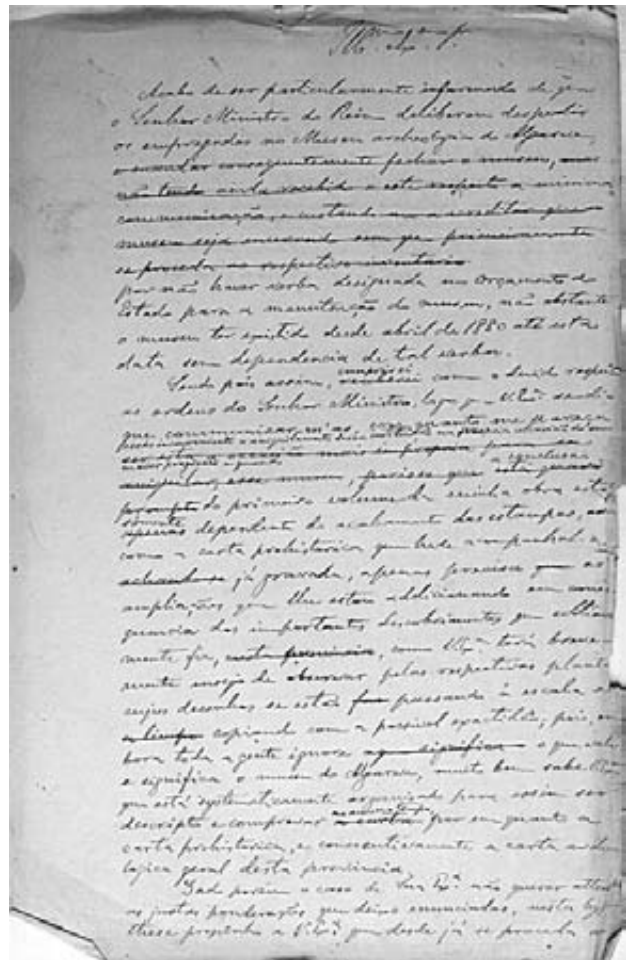 Ill.mo Ex.mo Sr.
Acabo de ser particularmente informado de que
o Senhor Ministro do Reino deliberou despedir
os empregados no Museu archeologico do Algarve,
e mandar consequentemente fechar o museu, mas
não tendo ainda recebido a este respeito a minima
communicação, e custando-me a acreditar que o
museu seja encerrado sem que primeiramente
se proceda ao respectivo inventario
por não haver verba designada no Orçamento do
Estado para a manutenção do museu, não obstante
o museu ter existido desde abril de 1880 até esta
data sem dependencia de tal verba.
Sendo pois assim, cumprirei com o devido respeito
as ordens do Senhor Ministro, logo que V. Ex.ª
que communicar-m'as, quanto me
ser esta a occasião mais impropria para se
museu, parece que
prompto do primeiro volume da minha obra está
somente apenas dependente do acabamento das estampas,
como a carta prehistorica que hade acompanhal-a,
achando-se já gravada, apenas precisa que as
ampliações que lhe estou addicionando em conse
quencia dos importantes descobrimentos que ultima
mente fiz, nesta provincia, como V. Ex.ª terá breve
mente ensejo de observar pelas respectivas plantas
cujos desenhos se estão passando á escala e
copiando com a possivel exactidão; pois, em
bora toda a gente ignore o que significa o que vale
e significa o museu do Algarve, muito bem sabe V. Ex.ª
que está systematicamente organisado para assim ser
descripto e comprovar por em quanto a
carta prehistorica, e consecutivamente a carta archeo
logica geral desta provincia.
Dado porém o caso de Sua Ex.ª não querer attender
as justas ponderações, que deixo enunciadas, nesta hypo
these proponho a V. Ex.ª que desde já se proceda